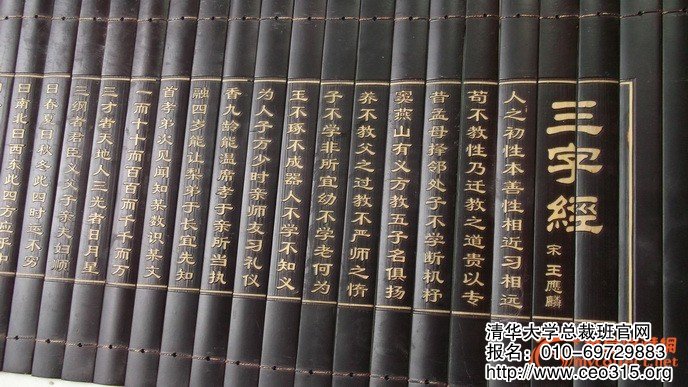 三字經
宋 王應麟
人之初性本善性相近习相远
苟不教性乃迁教之道贵以专
昔孟母择邻处子不学断机杼
窦燕山有义方教五子名俱扬
养不教父之过教不严师之惰
子不学非所宜幼不学老何为
玉不琢不成器人不学不知义
为人子方少时亲师友习礼仪
香九龄能温席孝于亲所当执
融四岁能让梨弟于长宜先知
首孝弟次见闻知某数识某文
一而十十而百百而千千而万
三才者天地人三光者日月星
三纲者君臣义父子亲夫妇顺
曰春夏曰秋冬此四时运不穷
曰南北曰西东此四方应乎中
清华大学总裁班官网
报名：010-69729883
www.ceo315.org